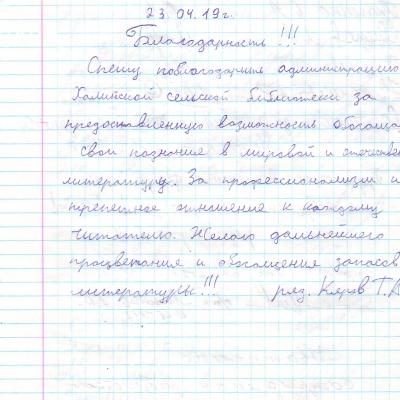 23.04.19г.
Благодарность!!!
Спешу поблагодарить администрацию
сельской библиотеки за
предоставленную возможность обогоща
свои познание в мировой и отечествен
литературу. За профессионализм и
отношение к каждому
читателю. Желаю дальнейшего
процветания и обогощения запасов
литературы!!! ряз.